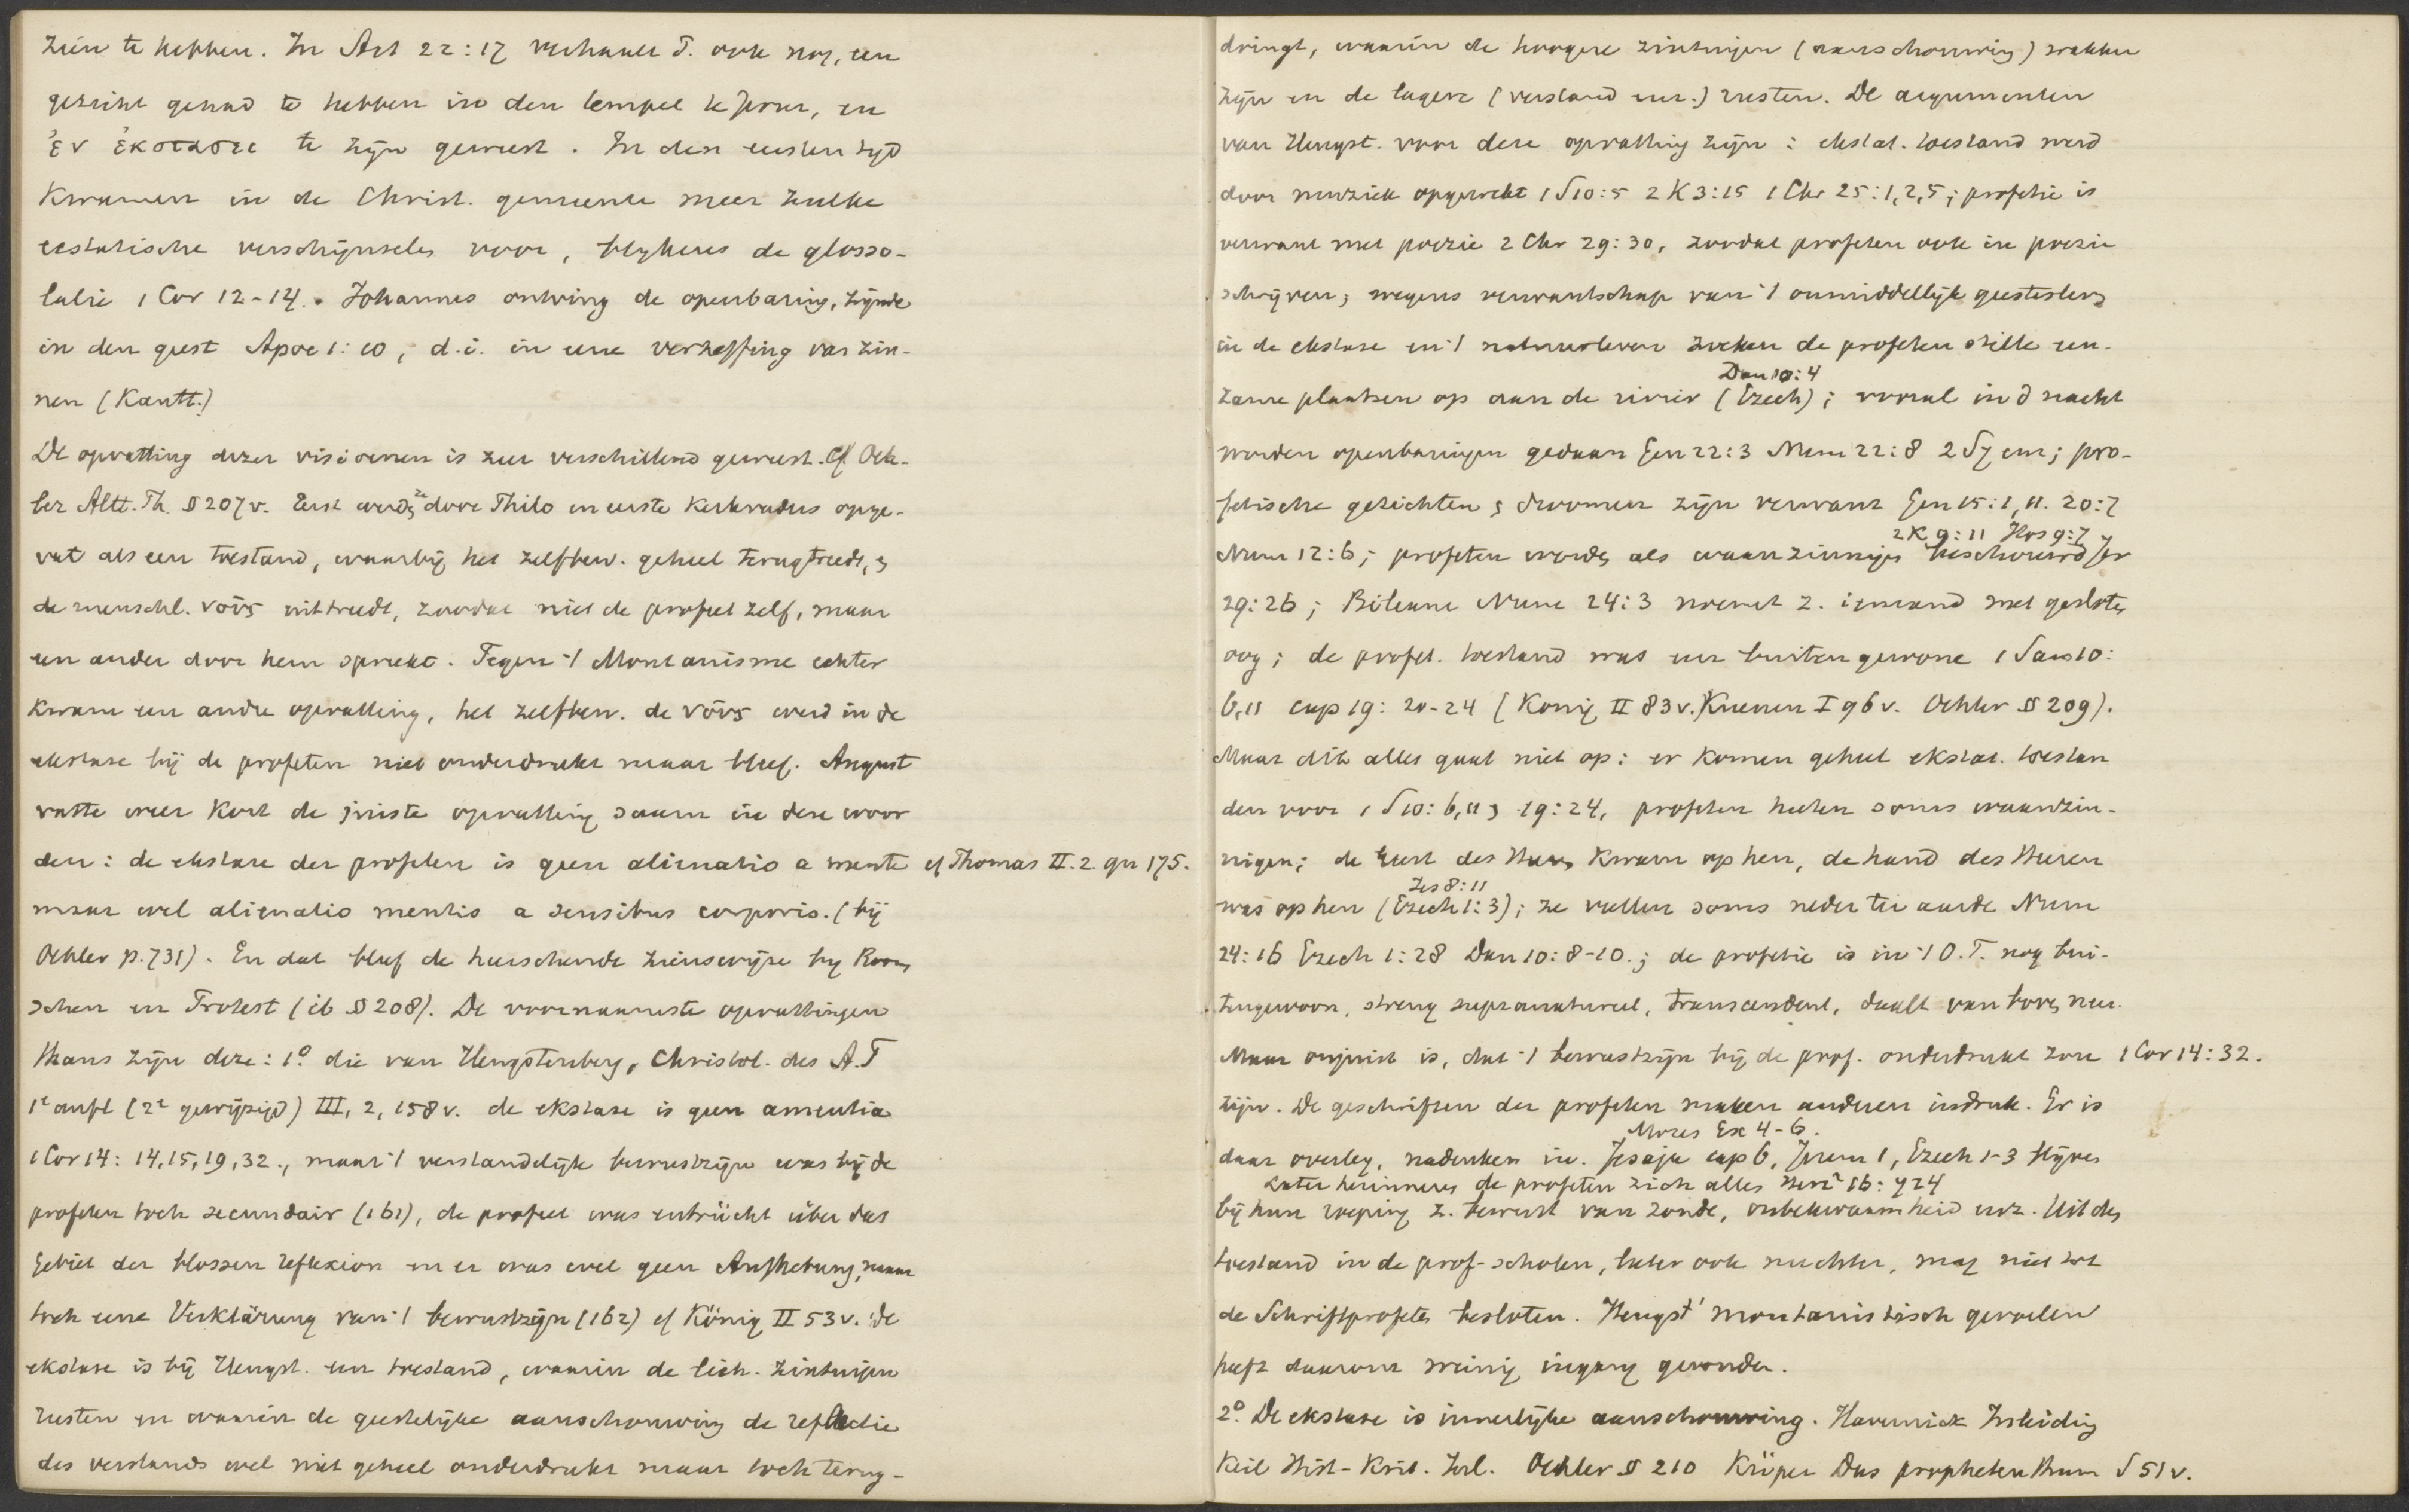 zien te hebben. In Act 22:17 verhaalt P. ook nog, een
gezicht gehad te hebben in den tempel te Jeruz, en
ἐν ἐκστασει te zijn geweest. In den eersten tijd
kwamen in de Christ. gemeente meer zulke
ecstatische verschijnselen voor, blijkens de glosso-
lalie 1 Cor 12-14. Johannes ontving de openbaring, zijnde
in den geest Apoc 1:10, d.i. in eene vertrekking van zin-
nen (Kantt.)
De opvatting dezer visioenen is zeer verschillend geweest. Cf. Oeh-
ler Altt. Th. § 207v. Eerst werden ze door Philo en eerste Kerkvaders opge-
vat als een toestand, waarbij het zelfbew. geheel terugtreedt, en
de menschl. νοῦς uittreedt, zoodat niet de profeet zelf, maar
een ander door hem spreekt. Tegen 't Montanisme echter
kwam een andre opvatting, het zelfbew. de νοῦς werd in de
ekstase bij de profeten niet onderdrukt maar bleef. August
vatte weer kort de juiste opvatting saam in deze woor
den: de ekstase der profeten is geen alienatio a mente cf Thomas II. 2. qu 175.
maar wel alienatio mentis a sensibus corporis. (bij
Oehler p. 731). En dat bleef de heerschende zienswijze bij Room
schen en Protest (ib § 208). De voornaamste opvattingen
thans zijn deze: 1º. die van Hengstenberg, Christol. des A.T
1e aufl (2e gewijzigd) III, 2, 158v. de ekstase is geen amentia
1 Cor 14: 14,15,19,32., maar 't verstandelijk bewustzijn was bij de
profeten toch secundair (161), de profeet was entrückt über das
Gebiet der blossen Reflexion en er was wel geen Aufhebung, maar
toch eene Verklärung van 't bewustzijn (162) cf König II 53v. De
ekstase is bij Hengst. een toestand, waarin de lich. zintuigen
rusten en waarin de geestelijke aanschouwing de reflectie
des verstands wel niet geheel onderdrukt maar toch terug-
dringt, waarin de hoogere zintuigen (aanschouwing) wakker
zijn en de lagere (verstand enz.) rusten. De argumenten
van Hengst. voor deze opvatting zijn: ekstat. toestand werd
door muziek opgewekt 1 S 10:5 2 K 3:15 1 Chr 25:1,2,5; profetie is
verwant met poezie 2 Chr 29:30, zoodat profeten ook in poezie
schrijven; wegens verwantschap van 't onmiddellijk geestesleven
in de ekstase en 't natuurleven zoeken de profeten stille een-
Dan 10:4
zame plaatsen op aan de rivier (Ezech); vooral in d nacht
worden openbaringen gedaan Gen 22:3 Num 22:8 2 S 7 enz; pro-
fetische gezichten en droomen zijn verwant Gen 15:1, 11. 20:7
2 K 9:11 Hos 9:7
Num 12:6; profeten worden als waanzinnigen beschouwd Jer
29:26; Bileam Num 24:3 noemt z. iemand met gesloten
oog; de profet. toestand was een buitengewone 1 Sam 10:
6,11 cap 19: 20-24 (Konig II 83v. Kuenen I 96v. Oehler § 209).
Maar dit alles gaat niet op: er komen geheel ekstat. toestan
den voor 1 S 10: 6,11 en 19:24, profeten heeten soms waanzin-
nigen; de Geest des Heeren kwam op hen, de hand des Heeren
Jes 8:11
was op hen (Ezech 1:3); ze vallen soms neder ter aarde Num
24:16 Ezech 1:28 Dan 10:8-10.; de profetie is in 't O.T. nog bui-
tengewoon, streng supranatureel, transcendent, daalt van boven neer.
Maar onjuist is, dat 't bewustzijn bij de prof. onderdrukt zou 1 Cor 14:32.
zijn. De geschriften der profeten maken anderen indruk. Er is
Mozes Ex 4-6.
daar overleg, nadenken in. Jesaja cap 6, Jerem 1, Ezech 1-3 blijven
Later herinneren de profeten zich alles
bij hun roeping z. bewust van zonde, onbekwaamheid enz. Uit den
toestand in de prof-scholen, later ook nuchter, mag niet tot
de Schriftprofeten besloten. Hengst' montanistisch gevoelen
heeft daarom weinig ingang gevonden.
2º. De ekstase is innerlijke aanschouwing. Havernick Inleiding
Keil Hist-Krit. Inl. Oehler § 210 Küper Das prophetenthum S 51v.